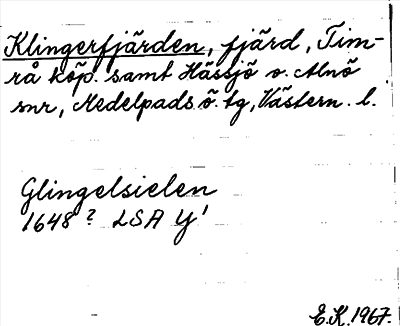 Klingerfjärden, fjärd, Tim-
rå köp. samt Hässjö o. Alnö
snr, Medelpads ö. tg, Västern. l.
Glingelsielen
1648? LSA Y'
E.K. 1967.